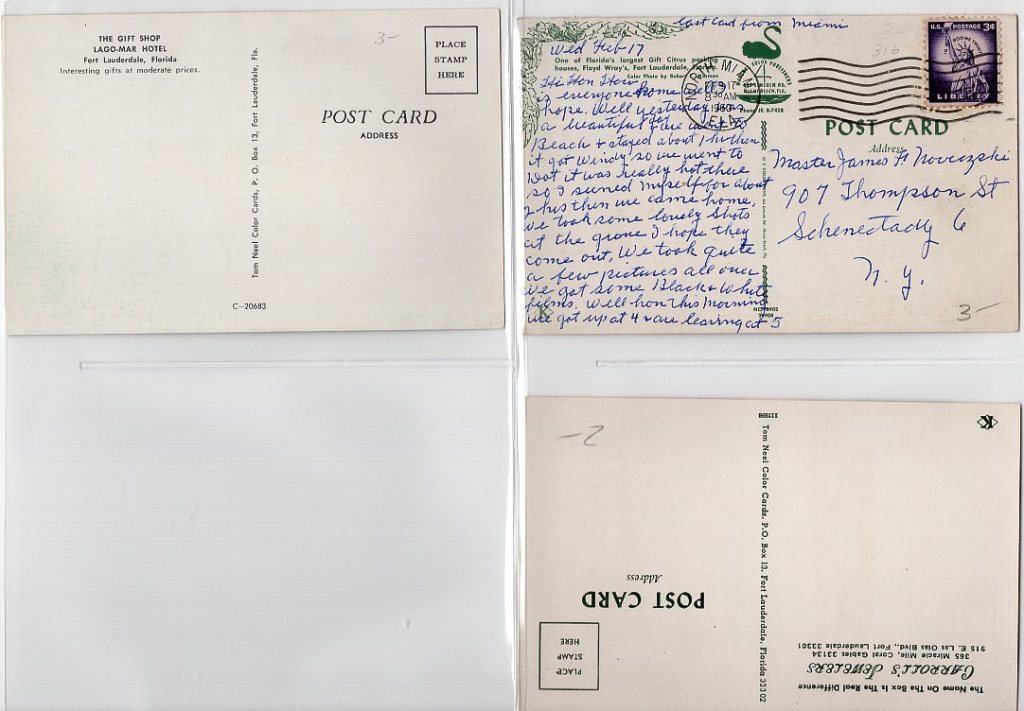 THE GIFT SHOP
LAGO-MAR HOTEL
Fort Lauderdale, Florida
Interesting gifts at moderate prices.
3-
PLACE
STAMP
HERE
POST CARD
ADDRESS
Tom Neel Color Cards, P. O. Box 13, Fort Lauderdale, Fla.
C-20683
Last Card from Miami
Wed Feb-17
One of Florida's largest Gift Citrus packing
houses, Floyd Wray's, Fort Lauderdale, Florida
Color Photo by
Hi Hon How
is everyone home well I
hope. Well yesterday was
a beautiful day we went to
Beach & stayed about 1 hr then
it got windy so we went to
Dot it was really hot there
so I sunned myself for about
2 hrs then we came home.
We took some lovely shots
at the grove I hope they
come out. We took quite
a few pictures all over
we got some Black & White
films. Well hon this morning
we got up at 4 & are leaving at 5
K
MIAMI
FEB 17
8 30 AM
1960
FLA.
U.S. POSTAGE 3¢
IN GOD WE TRUST
LIBERTY
316
POST CARD
Address
Master James H Novozski
907 Thompson St
Schenectady 6
N. Y.
3-
2-
117896
K
Tom Neel Color Cards, P.O. Box 13, Fort Lauderdale, Florida 33302
POST CARD
Address
PLACE
STAMP
HERE
The Name On The Box Is The Real Difference
CARROLL'S JEWELERS
365 Miracle Mile, Coral Gables 33134
915 E. Las Olas Blvd., Fort Lauderdale 33301